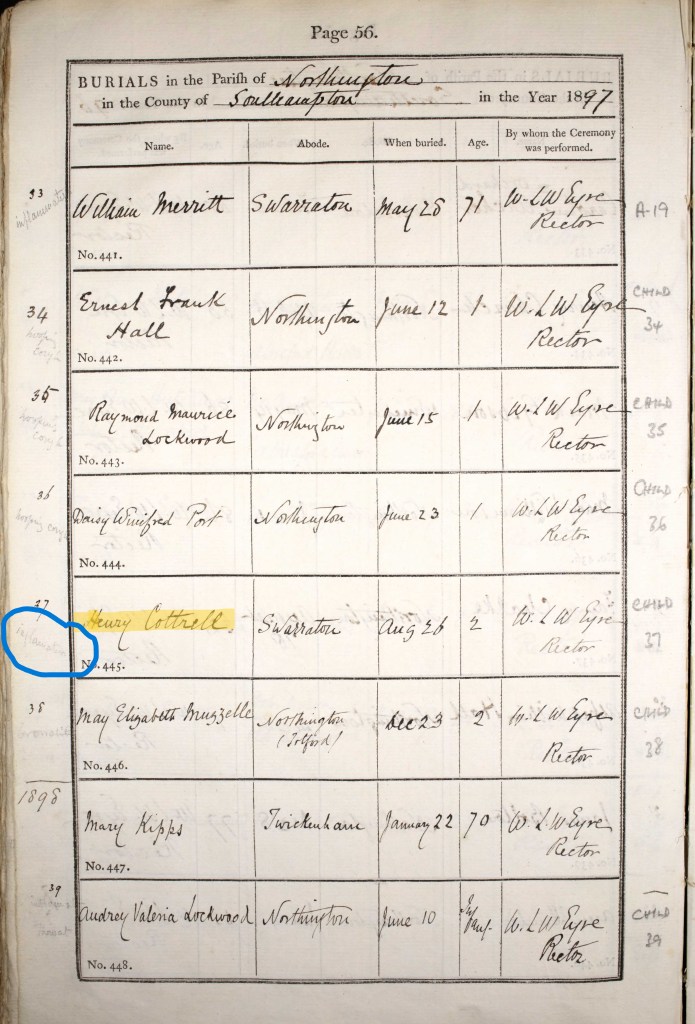 Page 56.
BURIALS in the Parish of Northington
in the County of Southampton in the Year 1897
Name. Abode. When buried. Age. By whom the Ceremony was performed.
33 William Merritt Swarraton May 28 71 W. L W Eyre A-19
Rector
No. 441.
34 Ernest Frank Northington June 12 1 W. L W Eyre CHILD
Hall Rector 34
No. 442.
35 Raymond Maurice Northington June 15 1 W. L W Eyre CHILD
Lockwood Rector 35
No. 443.
36 Daisy Winifred Port Northington June 23 1 W. L W Eyre CHILD
Rector 36
No. 444.
37 Henry Cottrell. Swarraton Aug 26 2 W. L W Eyre CHILD
Rector 37
No. 445.
38 May Elizabeth Muzzelle Northington Dec 23 2 W. L W Eyre CHILD
(Totford) Rector 38
No. 446.
1898
Mary Kipps Twickenham January 22 70 W. L W Eyre
Rector
No. 447.
39 Audrey Valeria Lockwood Northington June 10 W. L W Eyre CHILD
Rector 39
No. 448.